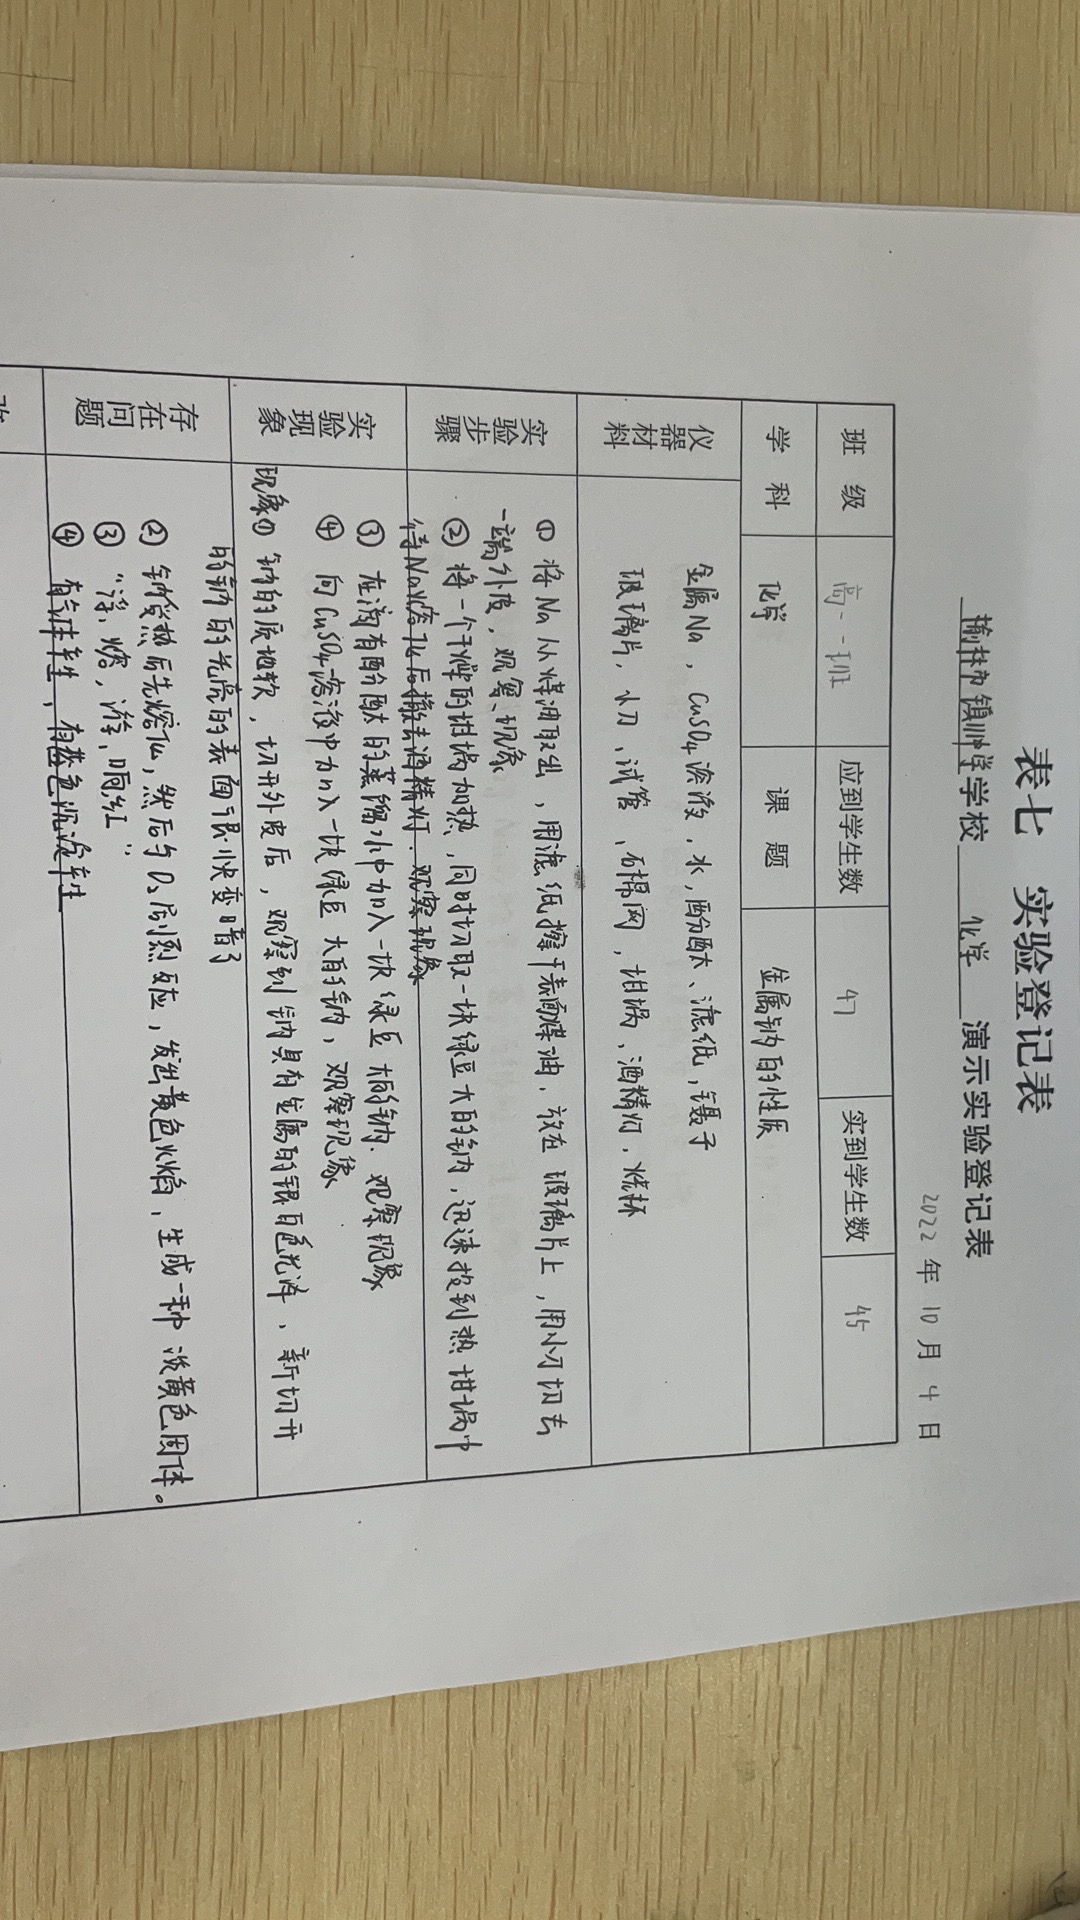 表七 实验登记表
榆林市镇川中学学校 化学 演示实验登记表
2022 年 10 月 4 日
班级 高一·一班 应到学生数 47 实到学生数 45
学科 化学 课题 金属钠的性质
仪器材料
金属Na，CuSO4溶液，水，酚酞、滤纸，镊子
玻璃片，小刀、试管、石棉网，坩埚、酒精灯，烧杯
实验步骤
① 将Na从煤油取出，用滤纸擦干表面煤油，放在玻璃片上，用小刀切去
一端外皮，观察现象
② 将一个干燥的坩埚加热，同时切取一块绿豆大的钠，迅速投到热坩埚中
待Na熔化后撤去酒精灯．观察现象
实验现象
③ 在滴有酚酞的蒸馏水中加入一块绿豆大的钠．观察现象
④ 向CuSO4溶液中加入一块绿豆大的钠，观察现象
现象① 钠的质地软，切开外皮后，观察到钠具有金属的银白色光泽，新切开
存在问题
的钠的光亮的表面很快变暗了
② 钠受热后先熔化，然后与O2剧烈反应，发出黄色火焰，生成一种淡黄色固体。
③ “浮，熔，游，响，红”
④ 有气体产生，有蓝色沉淀产生